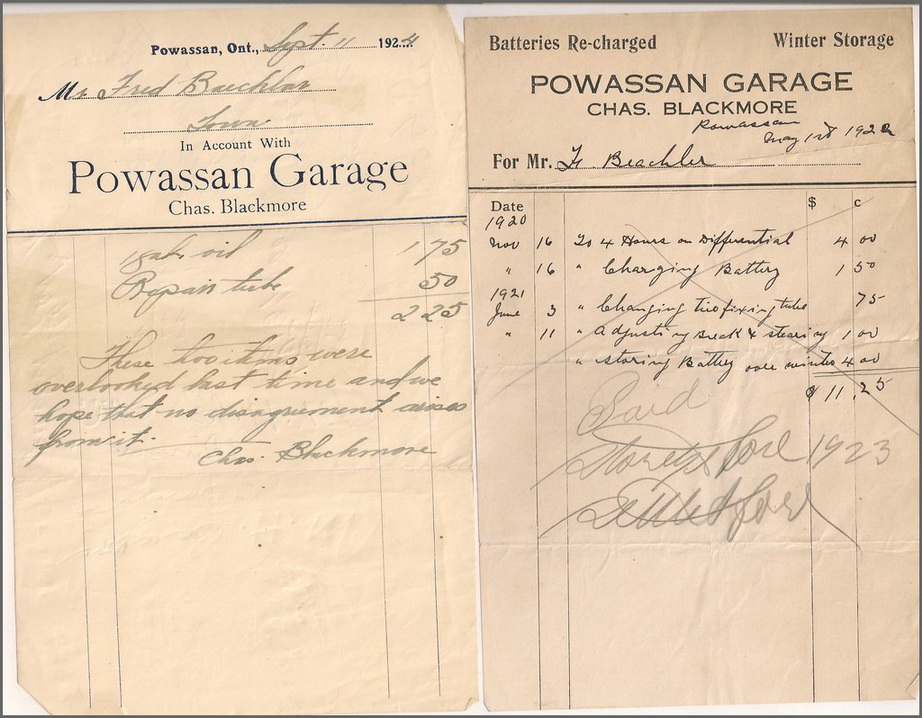 Powassan, Ont., Sept. 11 1924
Mr Fred Baechlar
Town
In Account With
Powassan Garage
Chas. Blackmore
oil 1 75
Repair tube 50
2 25
These two items were
overlooked last time and we
hope that no disagreement arises
from it.
Chas. Blackmore
Batteries Re-charged Winter Storage
POWASSAN GARAGE
CHAS. BLACKMORE
Powassan
May 1st 1922
For Mr. F Beachler
Date $ c
1920
Nov 16 To 4 Hours on Differential 4 00
" 16 " Charging Battery 1 50
1921
June 3 " Changing tire fixing tube 75
" 11 " Adjusting Break & stearing 1 00
" storing Battery over winter 4 00
$ 11.25
Paid
1923